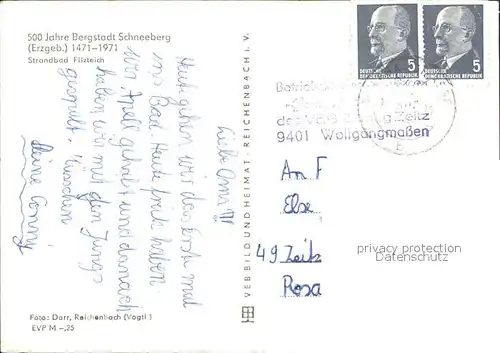 500 Jahre Bergstadt Schneeberg
(Erzgeb.) 1471–1971
Strandbad Filzteich
Liebe Oma!!!
Heut gehen wir das erste mal
ins Bad. Heute früh haben
wir Apell gehabt und danach
haben wir mit den Jungs
gespielt. Küsschen
deine Conny
Foto: Darr, Reichenbach (Vogtl.)
EVP M –,25
VEB BILD UND HEIMAT · REICHENBACH i. V.
DEUTSCHE
DEMOKRATISCHE REPUBLIK
5
DEUTSCHE
DEMOKRATISCHE REPUBLIK
5
des VEB Zeitz
9401 Wolfgangmaßen
An F
Else
49 Zeitz
Rosa
privacy protection
Datenschutz